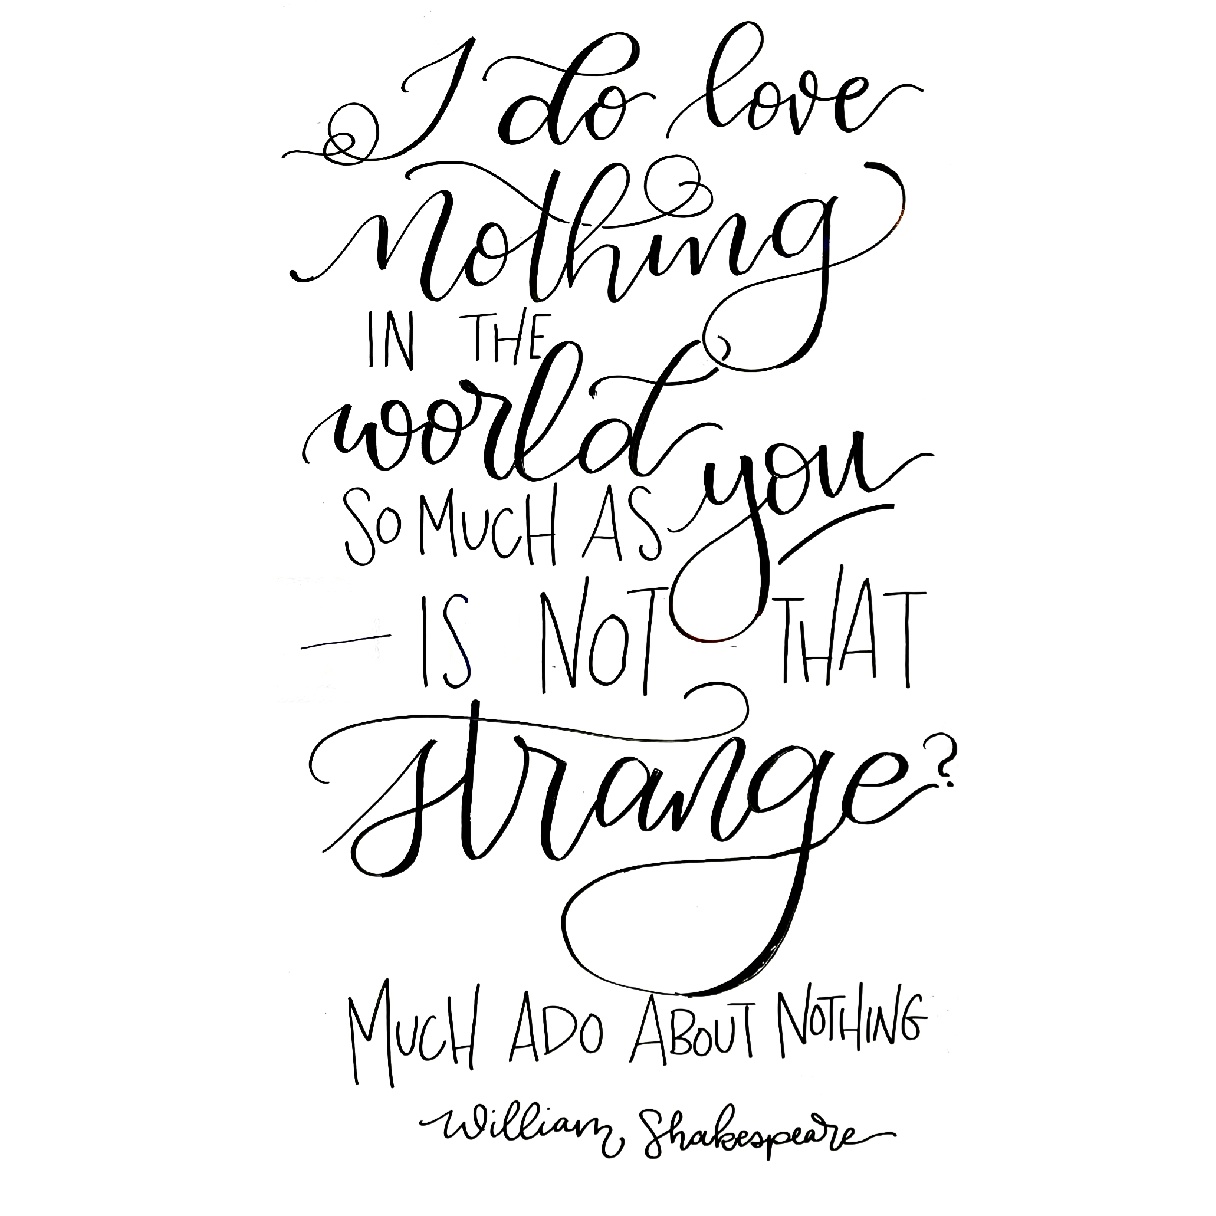 I do love
nothing
IN THE
world
SO MUCH AS you
— IS NOT THAT
strange?
MUCH ADO ABOUT NOTHING
William Shakespeare